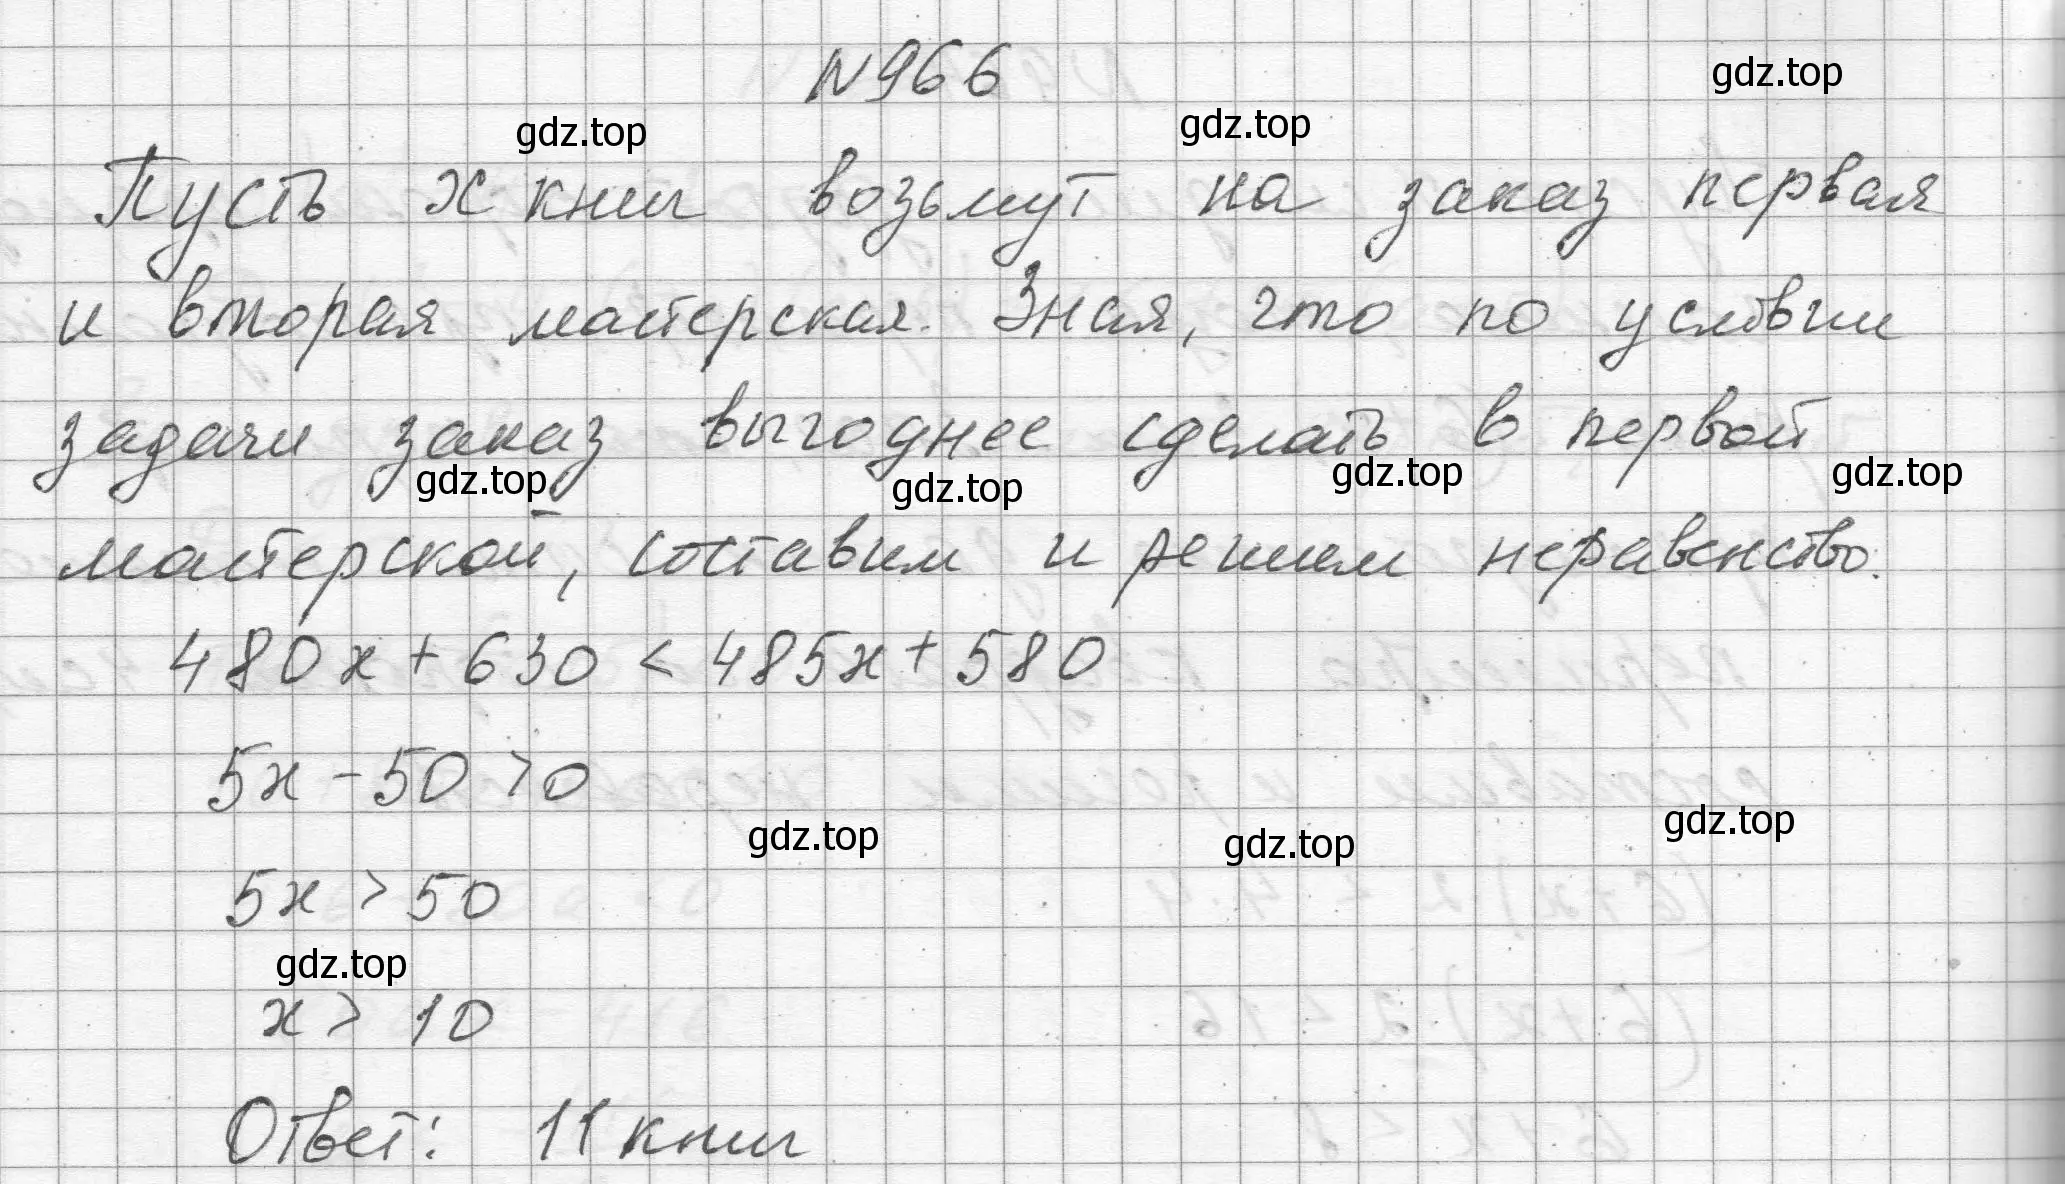 N966
gdz.top
gdz.top
gdz.top
Пусть х книг возьмут на заказ первая
и вторая мастерская. Зная, что по условию
задачи заказ выгоднее сделать в первой
gdz.top
gdz.top
gdz.top
gdz.top
мастерской, составим и решим неравенство:
480х + 630 < 485х + 580
5х - 50 > 0
gdz.top
gdz.top
gdz.top
5х > 50
gdz.top
х > 10
Ответ: 11 книг